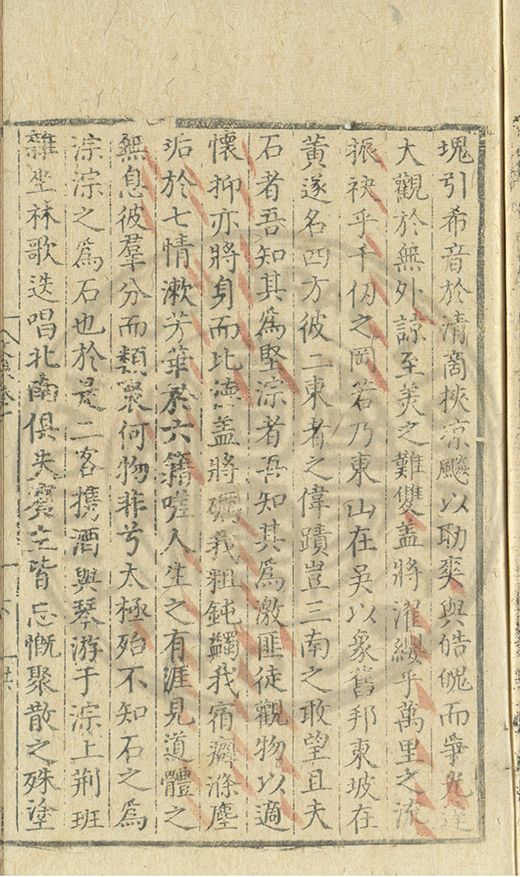 塊引希音於清商挾涼飈以助奕與皓魄而爭光達
大觀於無外諒至美之難雙盖將濯纓乎萬里之流
振袂乎千仞之岡若乃東山在吳以象舊邦東坡在
黃遂名四方彼二東者之偉蹟豈三南之敢望且夫
石者吾知其爲堅淙者吾知其爲激匪徒觀物以適
懷抑亦將身而比德盖將礪我粗鈍蠲我宿癖滌塵
垢於七情漱芳華於六籍嗟人生之有涯見道體之
無息彼羣分而類聚何物非兮太極殆不知石之爲
淙淙之爲石也於是二客携酒與琴游于淙上荆班
雜坐林歌迭唱北南俱失賓主皆忘慨聚散之殊塗